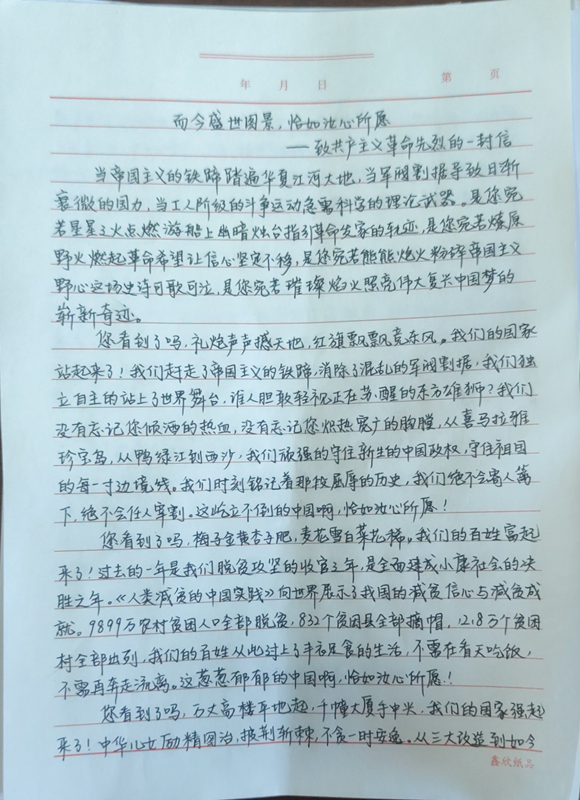 年 月 日 第 页
而今盛世图景，恰如汝心所愿
——致共产主义革命先烈的一封信
当帝国主义的铁蹄踏遍华夏江河大地，当军阀割据导致日渐
衰微的国力，当工人阶级的斗争运动急需科学的理论武器。是您宛
若星星之火点燃游船上幽暗烛台指引革命发家的轨迹，是您宛若燎原
野火燃起革命希望让信心坚定不移，是您宛若熊熊炮火粉碎帝国主义
野心这场史诗可歌可泣，是您宛若璀璨焰火照亮伟大复兴中国梦的
崭新奇迹。
您看到了吗，礼炮声声撼天地，红旗飘飘竞东风。我们的国家
站起来了！我们赶走了帝国主义的铁蹄，消除了混乱的军阀割据，我们独
立自主的站上了世界舞台，谁人胆敢轻视正在苏醒的东方雄狮？我们
没有忘记您倾洒的热血，没有忘记您炽热宽广的胸膛，从喜马拉雅
珍宝岛，从鸭绿江到西沙，我们顽强的守住新生的中国政权，守住祖国
的每一寸边境线。我们时刻铭记着那段屈辱的历史，我们绝不会寄人篱
下，绝不会任人宰割。这屹立不倒的中国啊，恰如汝心所愿！
您看到了吗，梅子金黄杏子肥，麦花雪白菜花稀。我们的百姓富起
来了！过去的一年是我们脱贫攻坚的收官之年，是全面建成小康社会的决
胜之年。《人类减贫的中国实践》向世界展示了我国的减贫信心与减贫成
就。9899万农村贫困人口全部脱贫，832个贫困县全部摘帽，12.8万个贫困
村全部出列，我们的百姓从此过上了丰衣足食的生活，不需在看天吃饭，
不需再奔走流离。这葱葱郁郁的中国啊，恰如汝心所愿！
您看到了吗，万丈高楼平地起，千幢大厦手中光，我们的国家强起
来了！中华儿女励精图治，披荆斩棘，不贪一时安逸。从三大改造到如今
鑫欣纸品